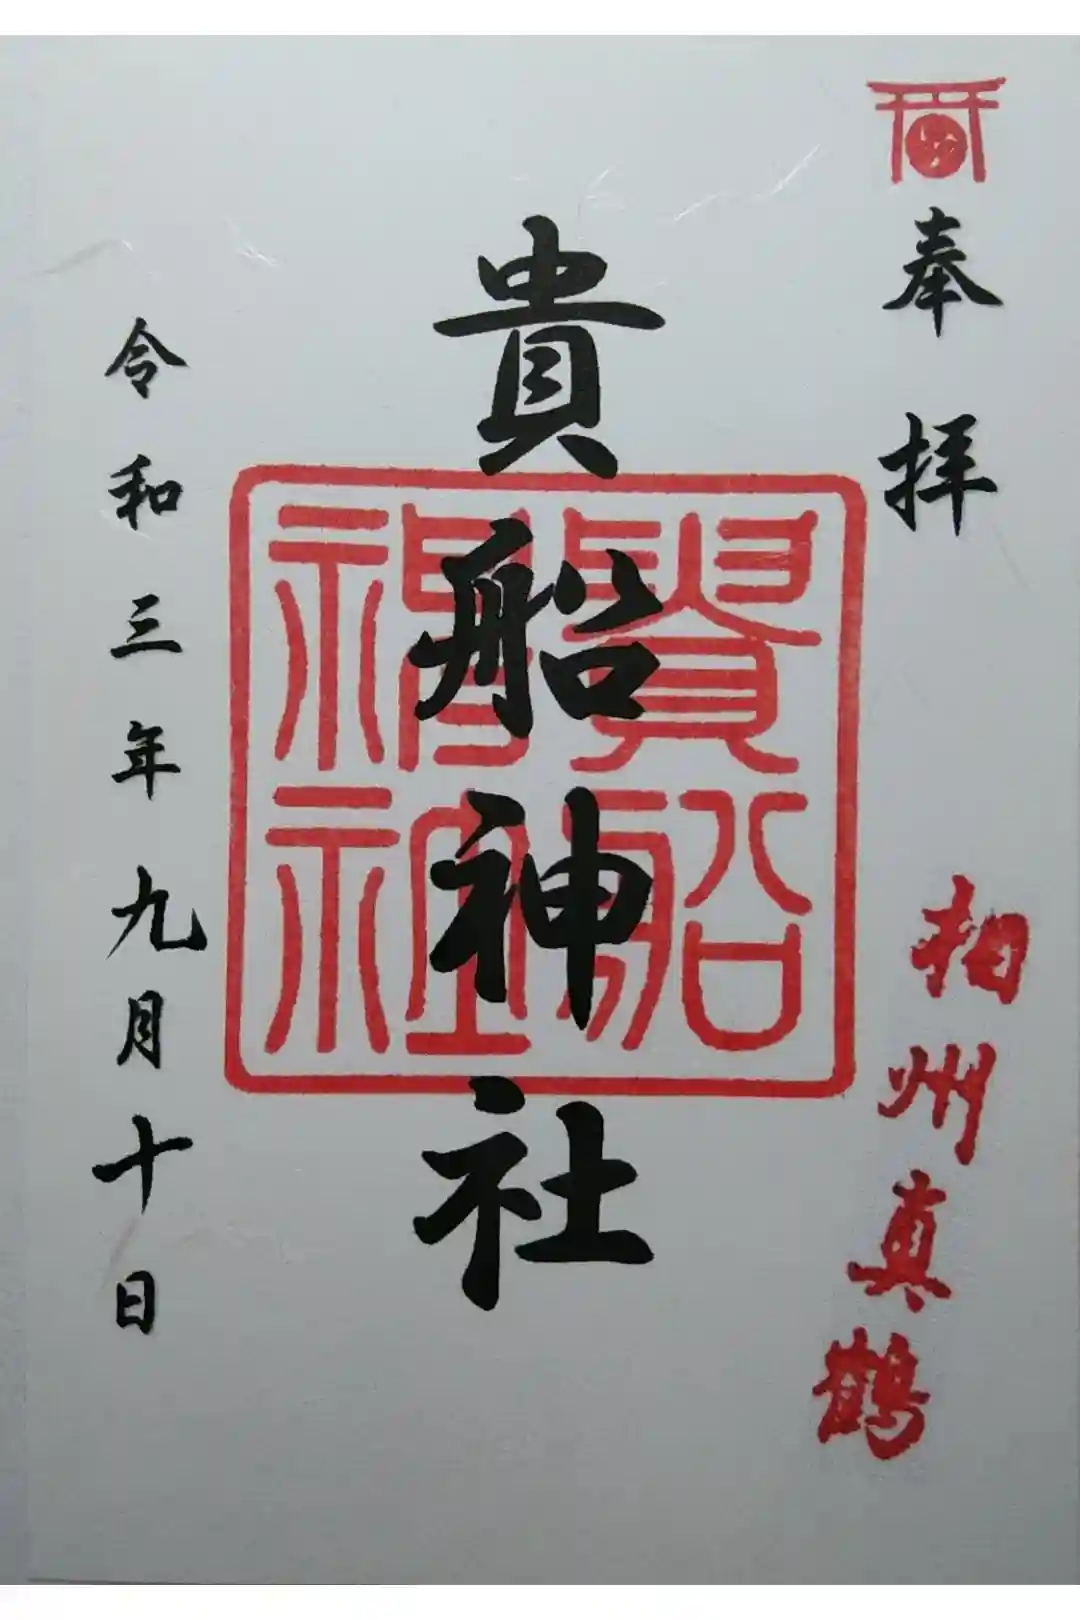 奉拝
相州真鶴
貴船神社
貴船
神社
令和三年九月十日